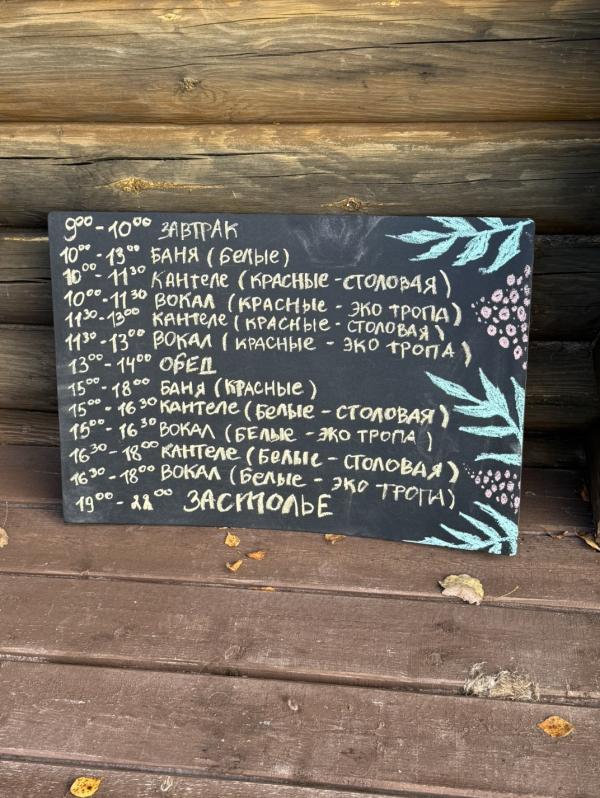 9⁰⁰ - 10⁰⁰ ЗАВТРАК
10⁰⁰ - 13⁰⁰ БАНЯ (БЕЛЫЕ)
10⁰⁰ - 11³⁰ КАНТЕЛЕ (КРАСНЫЕ - СТОЛОВАЯ)
10⁰⁰ - 11³⁰ ВОКАЛ (КРАСНЫЕ - ЭКО ТРОПА)
11³⁰ - 13⁰⁰ КАНТЕЛЕ (КРАСНЫЕ - СТОЛОВАЯ)
11³⁰ - 13⁰⁰ ВОКАЛ (КРАСНЫЕ - ЭКО ТРОПА)
13⁰⁰ - 14⁰⁰ ОБЕД
15⁰⁰ - 18⁰⁰ БАНЯ (КРАСНЫЕ)
15⁰⁰ - 16³⁰ КАНТЕЛЕ (БЕЛЫЕ - СТОЛОВАЯ)
15⁰⁰ - 16³⁰ ВОКАЛ (БЕЛЫЕ - ЭКО ТРОПА)
16³⁰ - 18⁰⁰ КАНТЕЛЕ (БЕЛЫЕ - СТОЛОВАЯ)
16³⁰ - 18⁰⁰ ВОКАЛ (БЕЛЫЕ - ЭКО ТРОПА)
19⁰⁰ - 22⁰⁰ ЗАСТОЛЬЕ